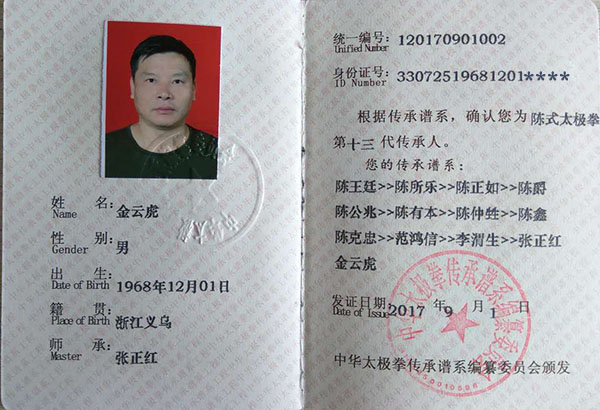 姓 名: 金云虎
Name
性 别: 男
Gender
出 生: 1968年12月01日
Date of Birth
籍 贯: 浙江义乌
Place of Birth
师 承: 张正红
Master
统一编号: 120170901002
Unified Number
身份证号: 33072519681201****
ID Number
根据传承谱系，确认您为陈式太极拳
第十三代传承人。
您的传承谱系:
陈王廷>>陈所乐>>陈正如>>陈爵
陈公兆>>陈有本>>陈仲甡>>陈鑫
陈克忠>>范鸿信>>李渭生>>张正红
金云虎
发证日期: 2017 年 9 月 1 日
Date of Issue
中华太极拳传承谱系编纂委员会
中华太极拳传承谱系编纂委员会颁发